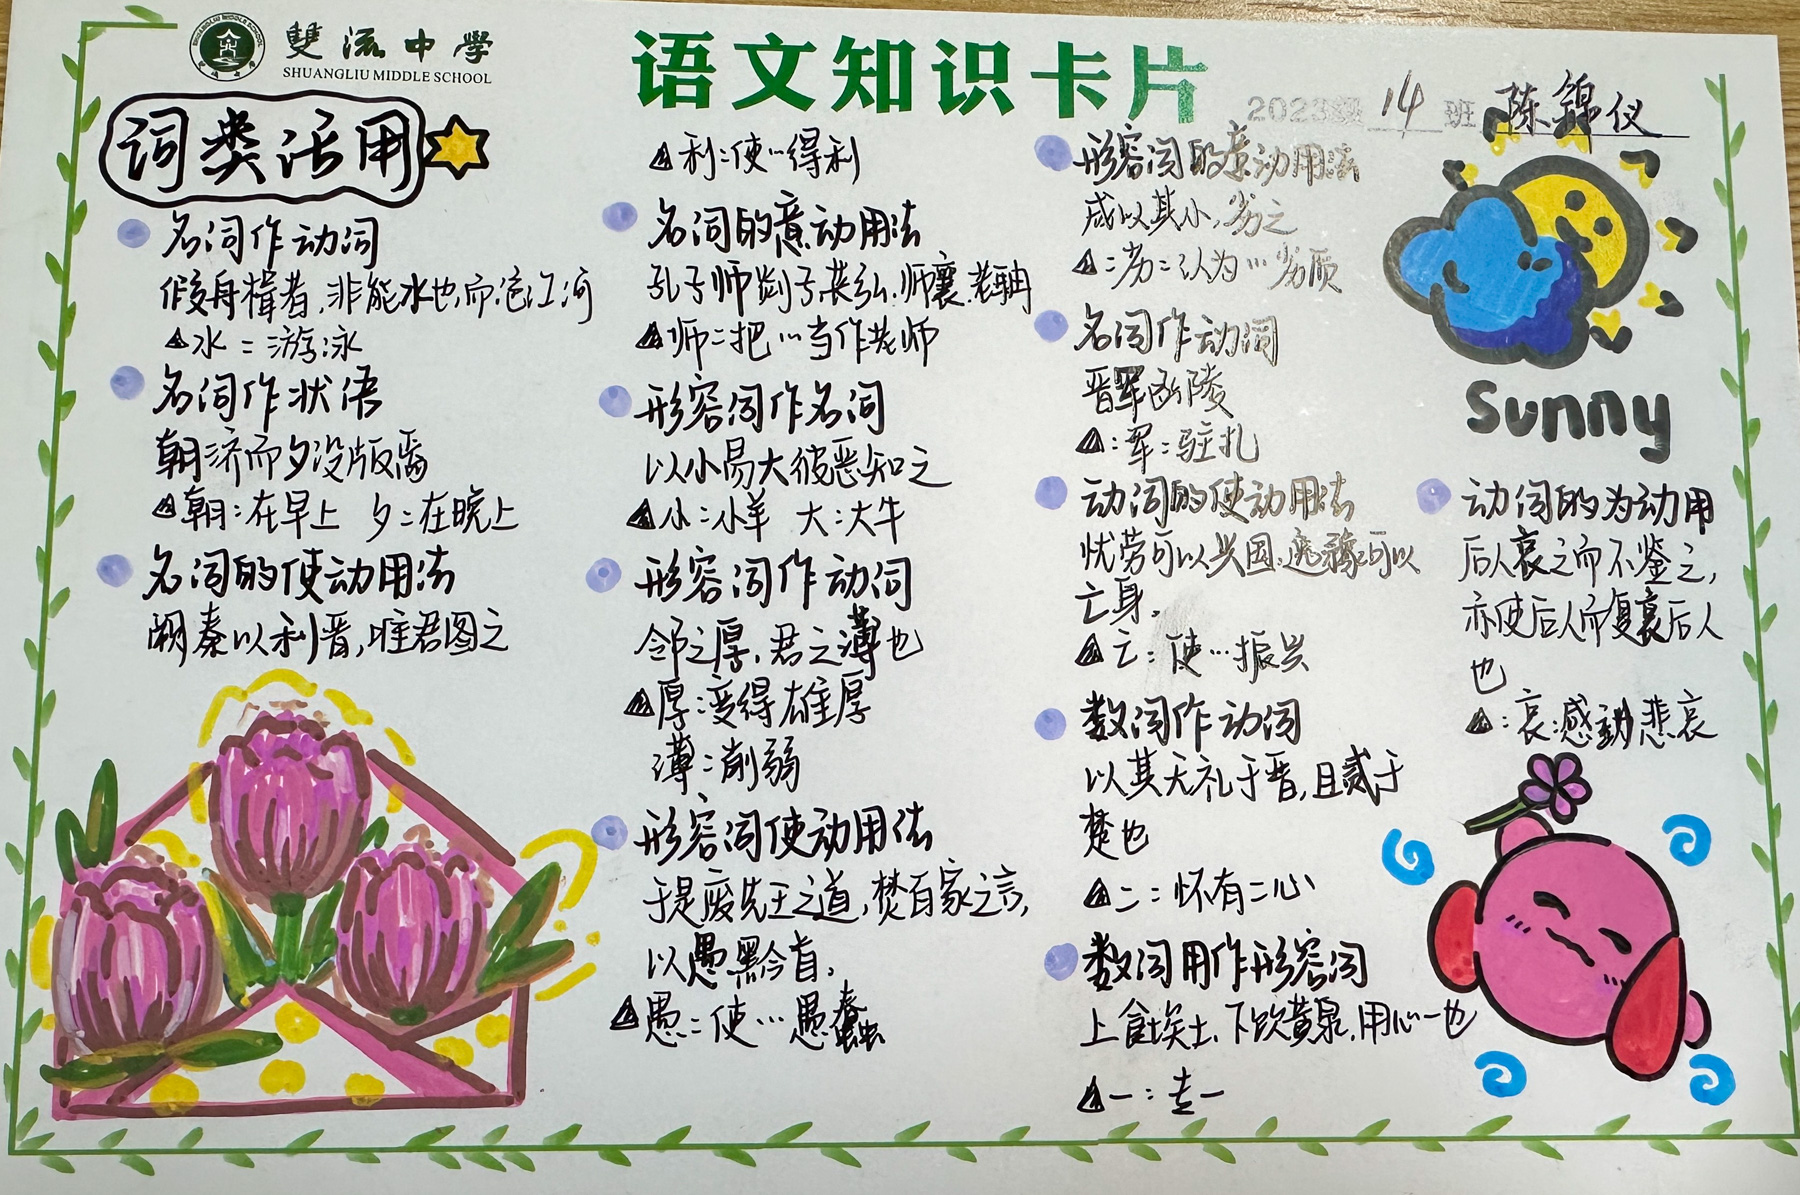 雙流中學
SHUANGLIU MIDDLE SCHOOL
语文知识卡片
2023级 14 班 陈锦仪
词类活用
名词作动词
假舟楫者,非能水也,而绝江河
水:游泳
名词作状语
朝济而夕设版焉
朝:在早上 夕:在晚上
名词的使动用法
阙秦以利晋,唯君图之
利:使…得利
名词的意动用法
孔子师郯子、苌弘、师襄、老聃
师:把…当作老师
形容词作名词
以小易大彼恶知之
小:小羊 大:大牛
形容词作动词
邻之厚,君之薄也
厚:变得雄厚
薄:削弱
形容词使动用法
于是废先王之道,焚百家之言,
以愚黔首,
愚:使…愚蠢
形容词的意动用法
成以其小,劣之
:劣:认为…劣质
名词作动词
晋军函陵
:军:驻扎
动词的使动用法
忧劳可以兴国,逸豫可以
亡身。
亡:使…振兴
数词作动词
以其无礼于晋,且贰于
楚也
二:怀有二心
数词用作形容词
上食埃土,下饮黄泉,用心一也
一:专一
Sunny
动词的为动用
后人哀之而不鉴之,
亦使后人而复哀后人
也
:哀:感到悲哀